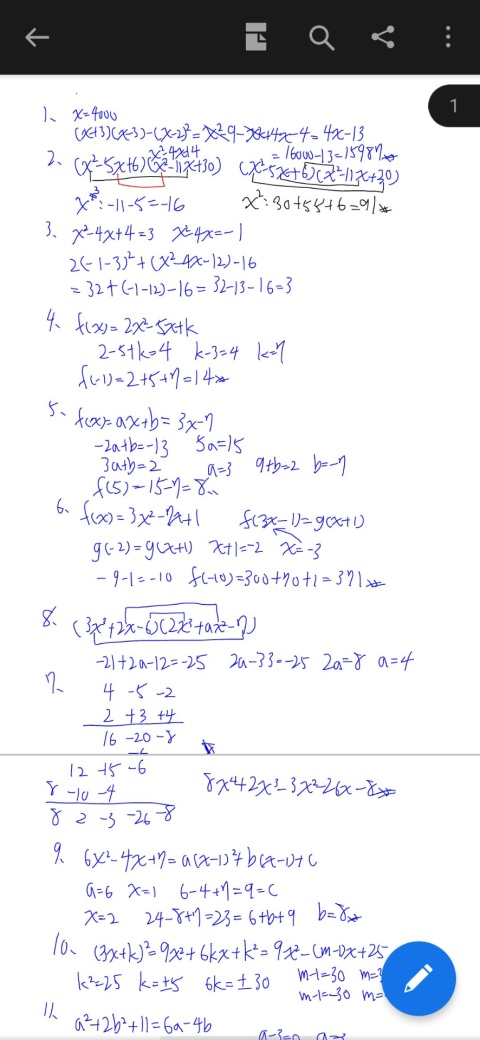 1
1、 x=4000
(x+3)(x-3)-(x-2)²=x²-9-x²+4x-4=4x-13
x²-4x+4
=16000-13=15987
2、 (x²-5x+6)(x²-11x+30) (x²-5x+6)(x²-11x+30)
x³:-11-5=-16 x²:30+55+6=91
3、 x²-4x+4=3 x²-4x=-1
2(-1-3)²+(x²-4x-12)-16
=32+(-1-12)-16=32-13-16=3
4、 f(x)=2x²-5x+k
2-5+k=4 k-3=4 k=7
f(-1)=2+5+7=14
5、 f(x)=ax+b=3x-7
-2a+b=-13 5a=15
3a+b=2 a=3 9+b=2 b=-7
f(5)=15-7=8
6、 f(x)=3x²-7x+1 f(3x-1)=g(x+1)
g(-2)=g(x+1) x+1=-2 x=-3
-9-1=-10 f(-10)=300+70+1=371
8、 (3x³+2x-6)(2x³+ax²-7)
-21+2a-12=-25 2a-33=-25 2a=8 a=4
7、 4 -5 -2
2 +3 +4
16 -20 -8
12 -15 -6
8 -10 -4 8x⁴+2x³-3x²-26x-8
8 2 -3 -26 -8
9、 6x²-4x+7=a(x-1)²+b(x-1)+c
a=6 x=1 6-4+7=9=c
x=2 24-8+7=23=6+b+9 b=8
10、 (3x+k)²=9x²+6kx+k²=9x²-(m-1)x+25
k²=25 k=±5 6k=±30 m-1=30 m=
m-1=-30 m=
11、 a²+2b²+11=6a-4b
a-3=0